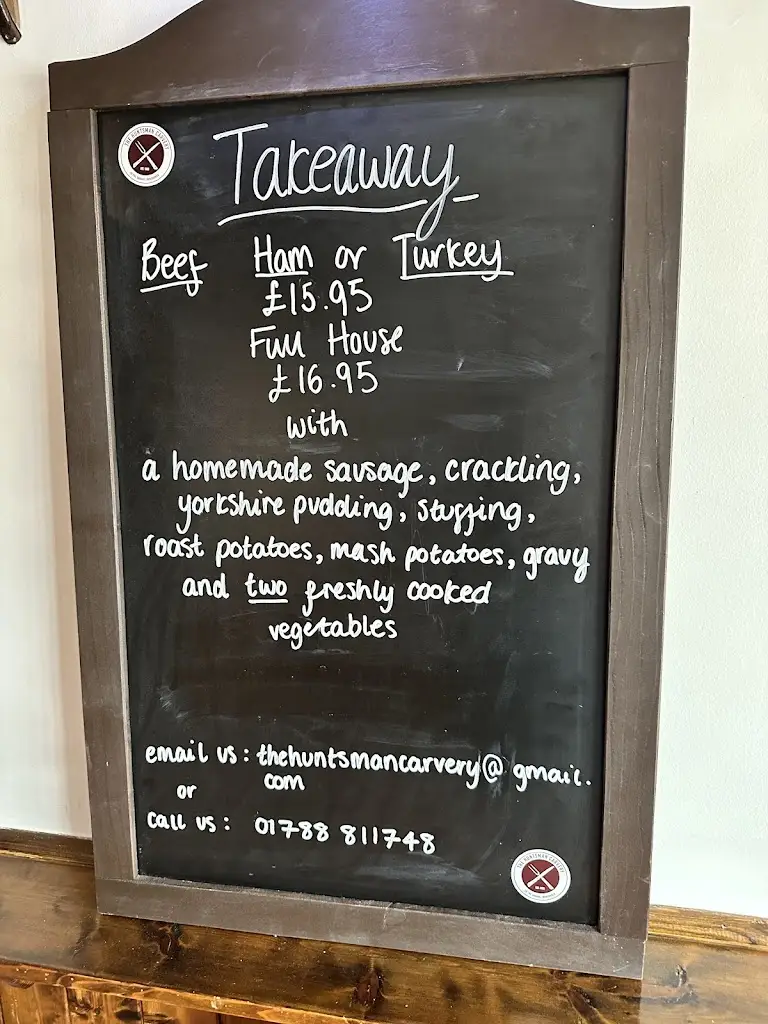 THE HUNTSMAN CARVERY
Takeaway
Beef Ham or Turkey
£15.95
Full House
£16.95
with
a homemade sausage, crackling,
yorkshire pudding, stuffing,
roast potatoes, mash potatoes, gravy
and two freshly cooked
vegetables
email us: thehuntsmancarvery@gmail.
com
or
call us: 01788 811748
THE HUNTSMAN CARVERY